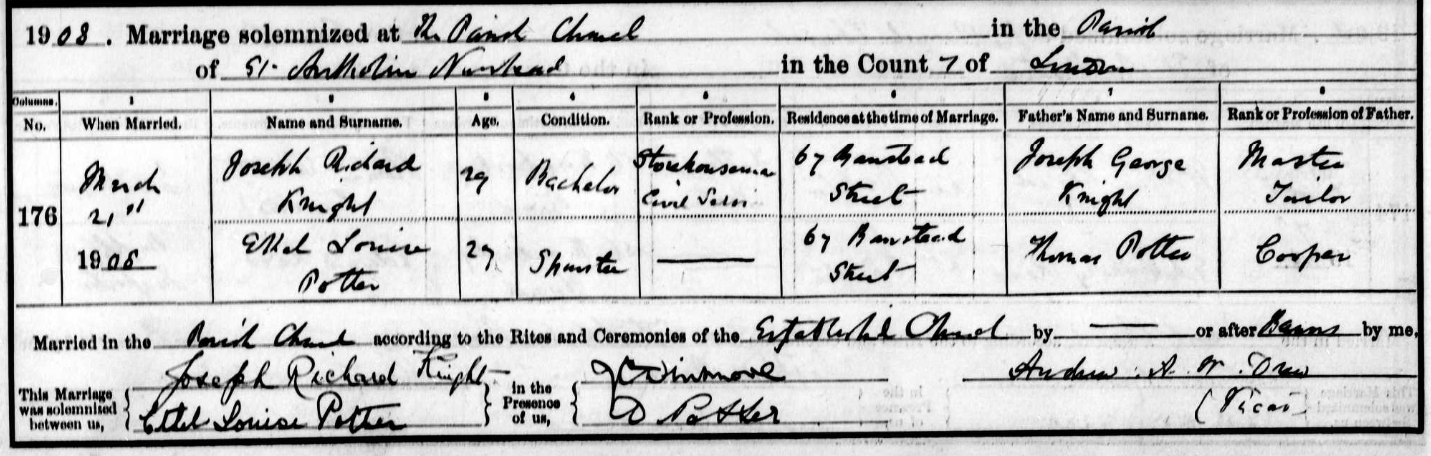 1908. Marriage solemnized at The Parish Church in the Parish
of St. Antholin Nunhead in the County of London
Columns. 1 2 3 4 5 6 7 8
No. When Married. Name and Surname. Age. Condition. Rank or Profession. Residence at the time of Marriage. Father's Name and Surname. Rank or Profession of Father.
176
March
21st
1908
Joseph Richard
Knight
29
Bachelor
Storehouseman
Civil
67 Banstead
Street
Joseph George
Knight
Master
Tailor
Ethel Louise
Potter
29
Spinster
67 Banstead
Street
Thomas Potter
Cooper
Married in the Parish Church according to the Rites and Ceremonies of the Established Church by — or after Banns by me,
This Marriage was solemnized between us,
Joseph Richard Knight
Ethel Louise Potter
in the Presence of us,
Potter
Andrew A. W. Drew
(Vicar)